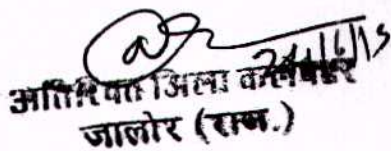 24/6/15
अतिरिक्त जिला कलेक्टर
जालोर (राज.)